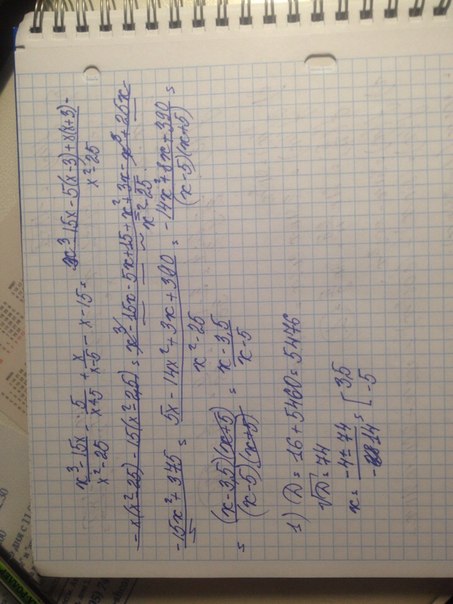 x³-15x/x²-25 - 5/x+5 + x/x-5 - x - 15 = x³-15x-5(x-3)+x(x+5)-/x²-25
-x(x²-25)-15(x²-25) = x³-15x-5x+25+x²+3x-x³+25x-/x²-25
-15x²+375 = 5x-14x²+3x+390/x²-25 = -14x²+8x+390/(x-5)(x+5) =
= (x-3,5)(x+5)/(x-5)(x+5) = x-3,5/x-5
1) D = 16+5460 = 5476
√D = 74
x = -4±74/-14 = [ 3,5 -5